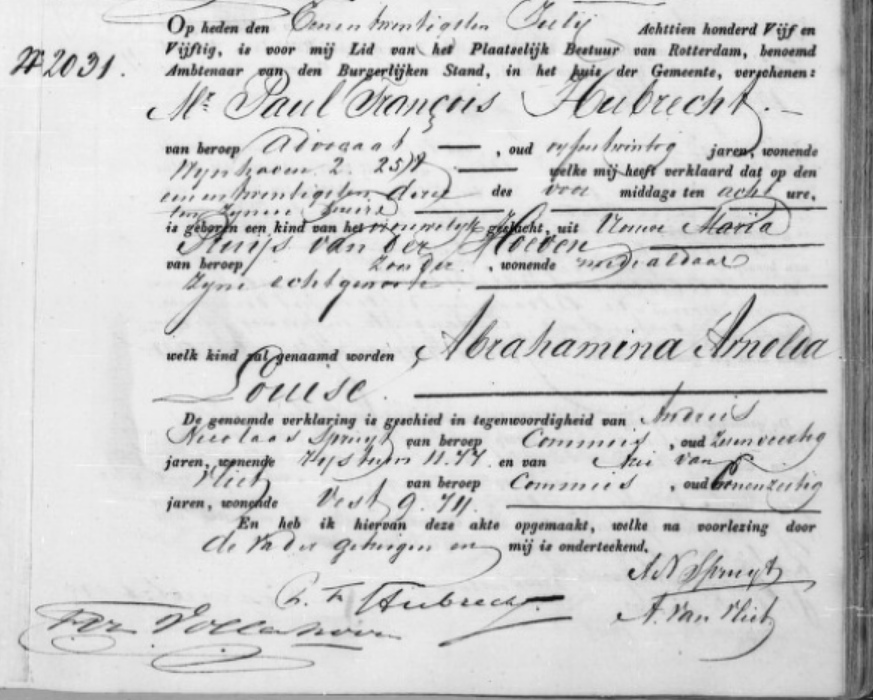 Op heden den Eenentwintigsten July Achttien honderd Vijf en
Vijftig, is voor mij Lid van het Plaatselijk Bestuur van Rotterdam, benoemd
№ 2031. Ambtenaar van den Burgerlijken Stand, in het huis der Gemeente, verschenen:
Mr Paul François Hubrecht. —
van beroep Advocaat — , oud vyfentwintig jaren, wonende
Wynhaven 2. — welke mij heeft verklaard dat op den
eenentwintigsten dezer des voor middags ten acht ure,
ten zynen huize
is geboren een kind van het vrouwelyk geslacht, uit Vrouwe Maria
Pruijs van der Hoeven
van beroep zonder , wonende mede aldaar
zyne echtgenoote
welk kind zal genaamd worden Abrahamina Arnolda
Louise.
De genoemde verklaring is geschied in tegenwoordigheid van Andries
Nicolaas Spruyt van beroep Commies , oud
jaren, wonende 11.77. en van Arie van
Vliet van beroep Commies , oud Eenenzestig
jaren, wonende Vest 9. 711.
En heb ik hiervan deze akte opgemaakt, welke na voorlezing door
de vader getuigen en mij is onderteekend.
A N Spruyt
P. F. Hubrecht
A. van Vliet
Vollenhoven